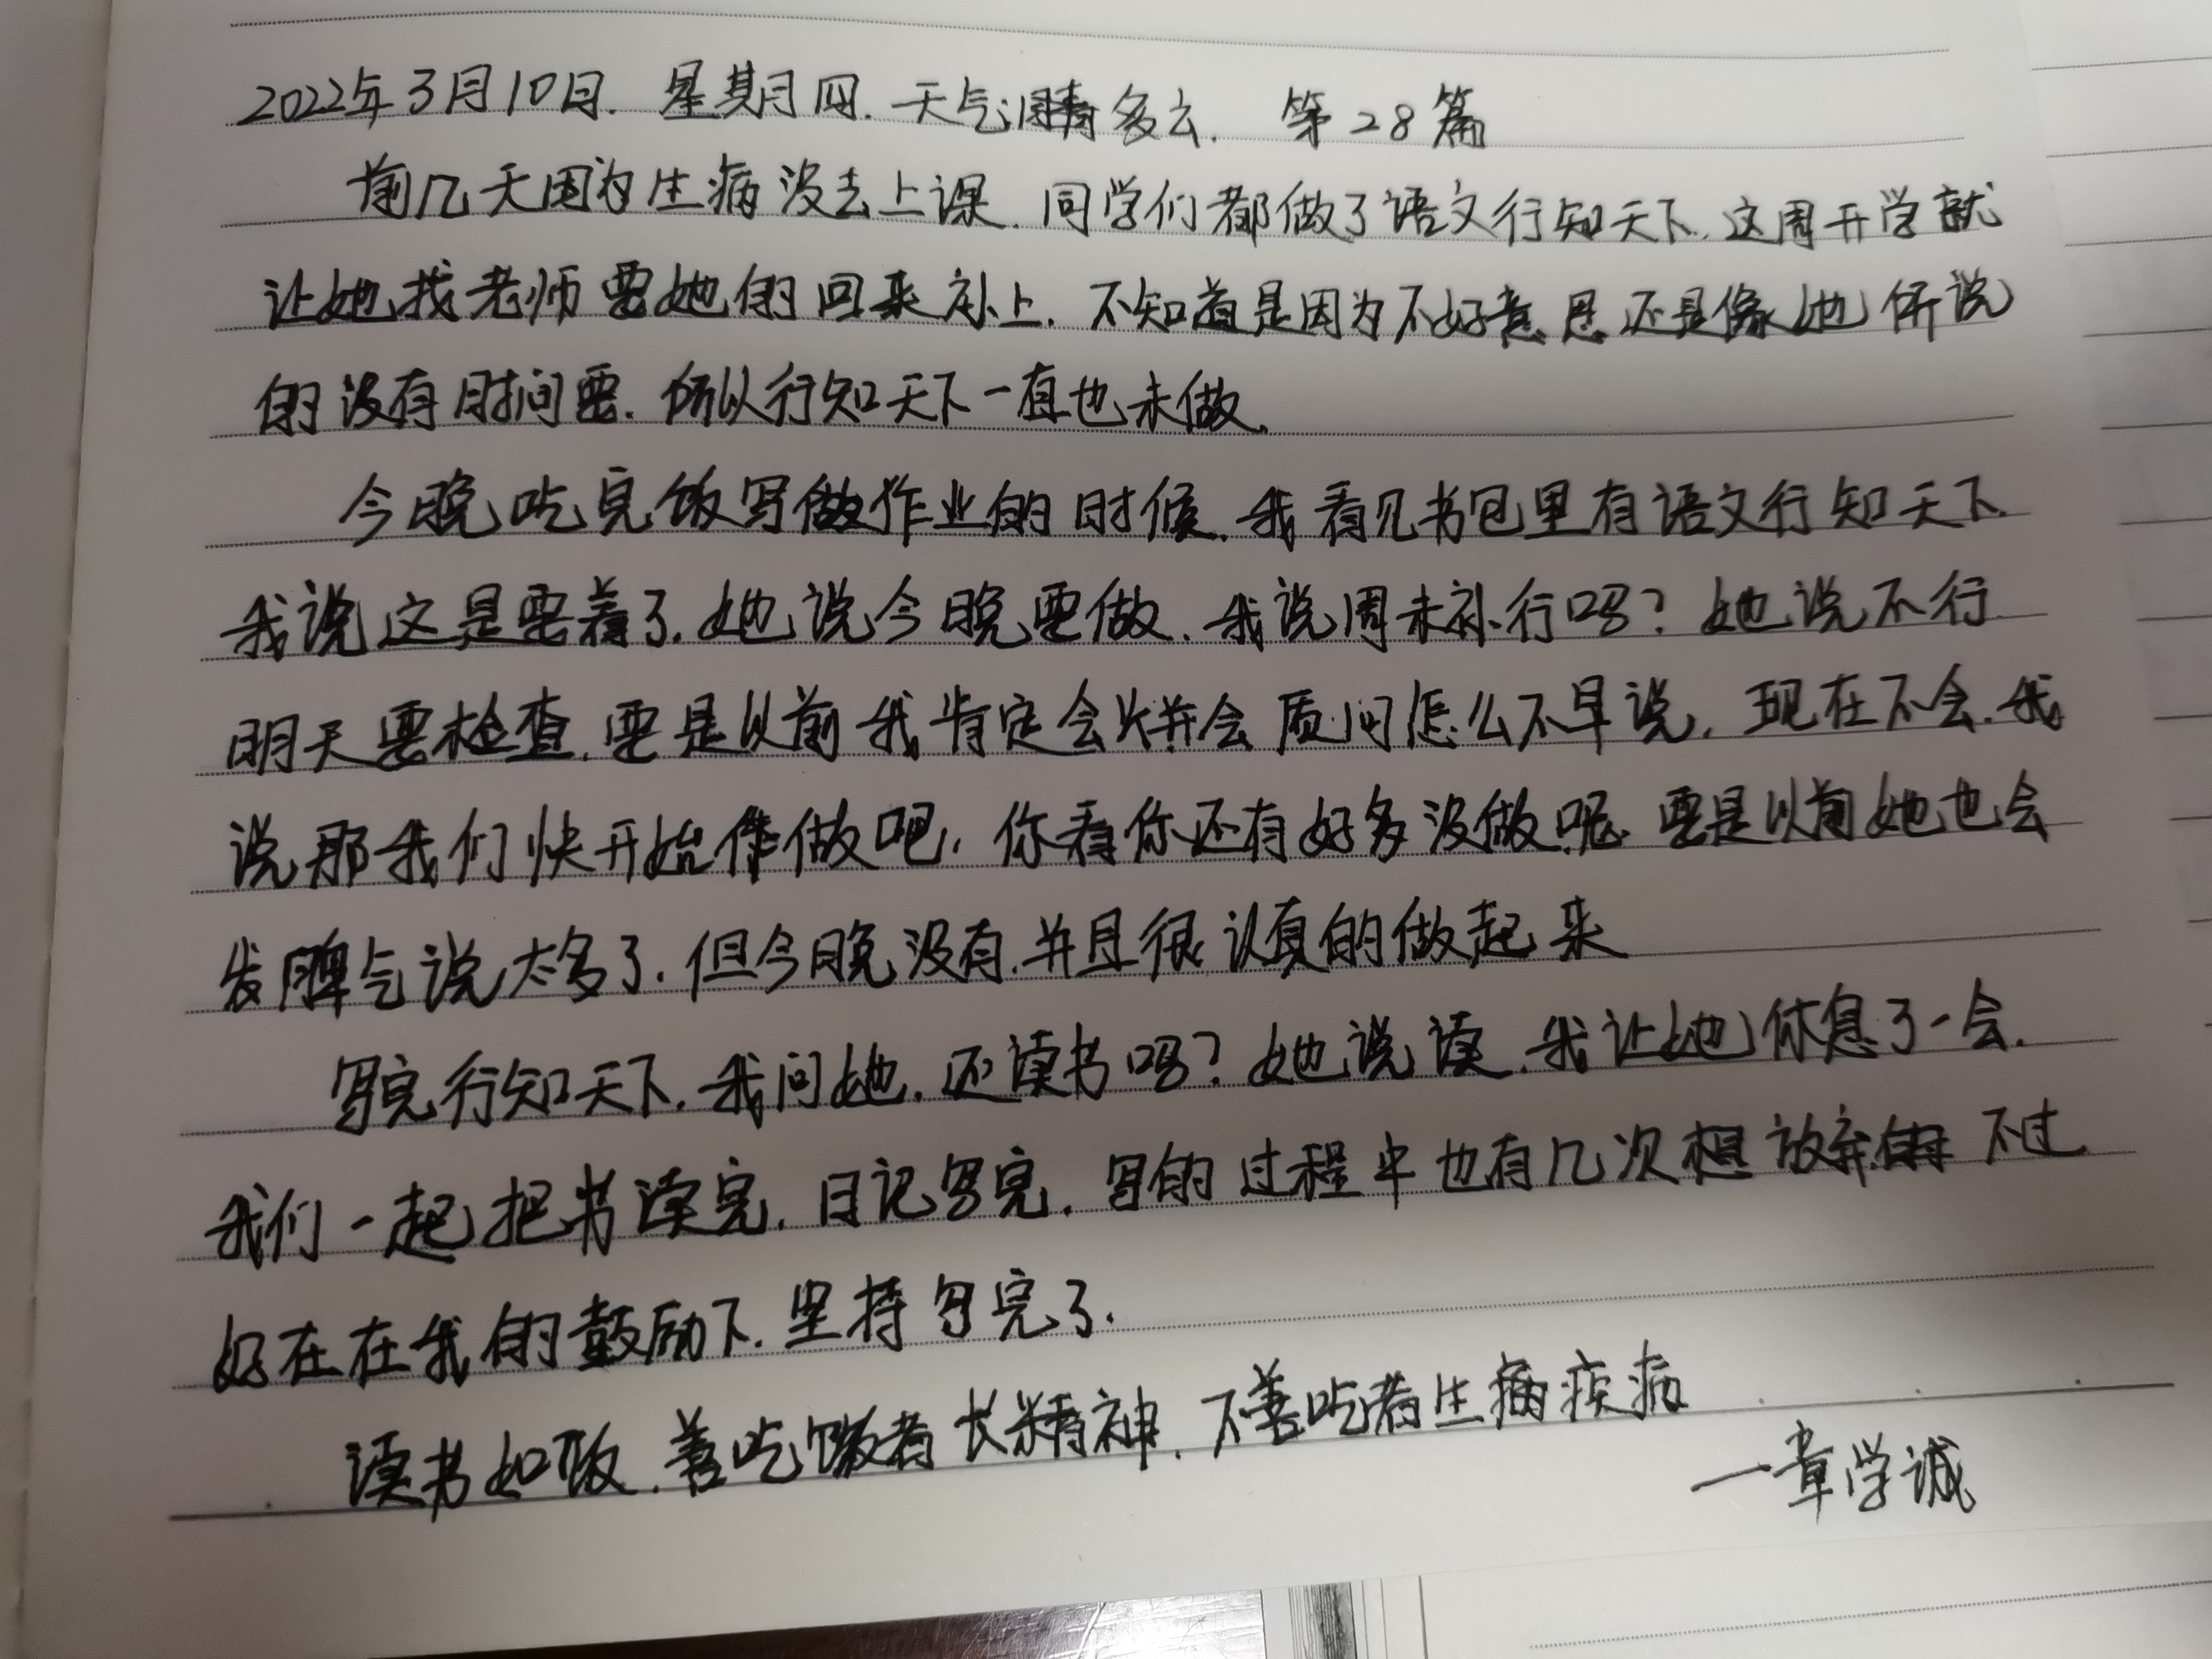 2022年3月10日. 星期四. 天气晴多云. 第28篇
前几天因为生病没去上课. 同学们都做了语文行知天下. 这周开学就
让她找老师要她的回来补上. 不知道是因为不好意思还是像她所说
的没有时间要. 所以行知天下一直也未做.
今晚吃完饭写做作业的时候. 我看见书包里有语文行知天下.
我说这是要着了. 她说今晚要做. 我说周末补行吗? 她说不行
明天要检查. 要是以前我肯定会炸并会质问怎么不早说. 现在不会. 我
说那我们快开始做吧. 你看你还有好多没做呢. 要是以前她也会
发脾气说太多了. 但今晚没有. 并且很认真的做起来
写完行知天下. 我问她. 还读书吗? 她说读. 我让她休息了一会.
我们一起把书读完. 日记写完. 写的过程中也有几次想放弃的 不过
好在在我的鼓励下. 坚持写完了.
读书如饭. 善吃饭者长精神. 不善吃者生病疾病
一章学诚